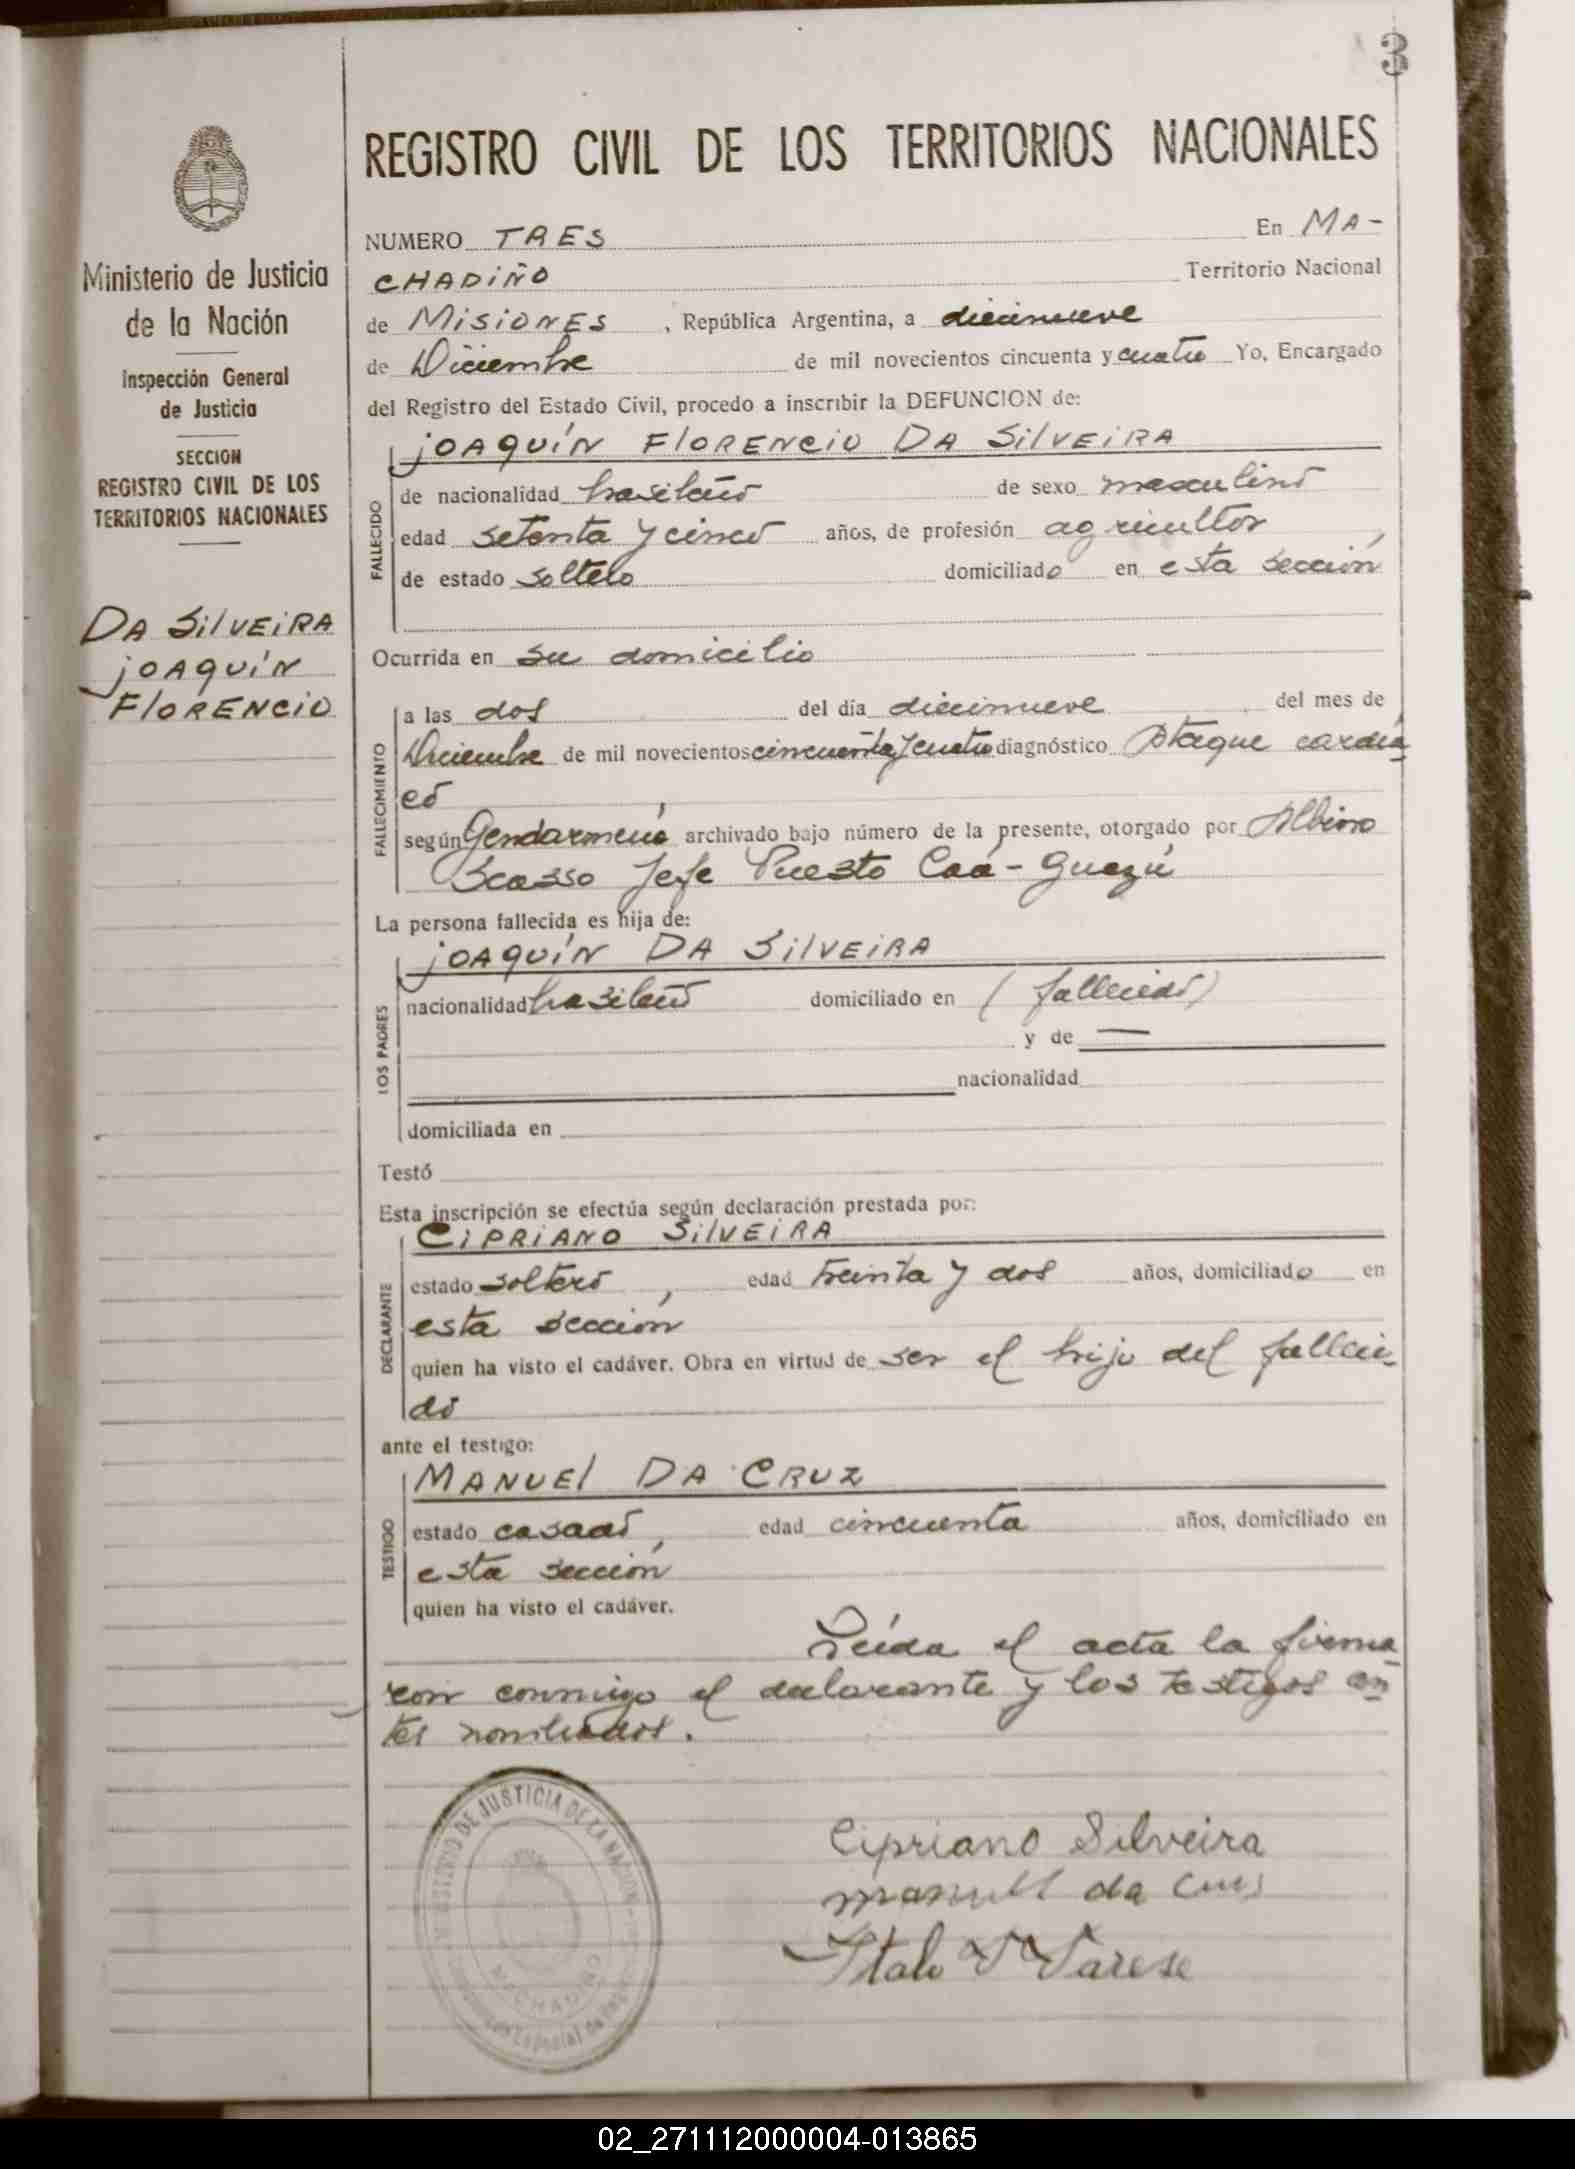 3
REGISTRO CIVIL DE LOS TERRITORIOS NACIONALES
Ministerio de Justicia
de la Nación
Inspección General
de Justicia
SECCION
REGISTRO CIVIL DE LOS
TERRITORIOS NACIONALES
DA SILVEIRA
JOAQUÍN
FLORENCIO
NUMERO TRES En MA-
CHADIÑO Territorio Nacional
de MISIONES , República Argentina, a diecinueve
de Diciembre de mil novecientos cincuenta y cuatro Yo, Encargado
del Registro del Estado Civil, procedo a inscribir la DEFUNCION de:
JOAQUÍN FLORENCIO DA SILVEIRA
FALLECIDO
de nacionalidad brasileño de sexo masculino
edad setenta y cinco años, de profesión agricultor,
de estado soltero domiciliado en esta sección
Ocurrida en su domicilio
FALLECIMIENTO
a las dos del día diecinueve del mes de
Diciembre de mil novecientos cincuenta y cuatro diagnóstico Ataque cardía-
co
según Gendarmería archivado bajo número de la presente, otorgado por Albino
Scasso Jefe Puesto Caá-Guazú
La persona fallecida es hija de:
JOAQUÍN DA SILVEIRA
LOS PADRES
nacionalidad brasileño domiciliado en (fallecido)
y de —
nacionalidad
domiciliada en
Testó
Esta inscripción se efectúa según declaración prestada por:
CIPRIANO SILVEIRA
DECLARANTE
estado soltero, edad treinta y dos años, domiciliado en
esta sección
quien ha visto el cadáver. Obra en virtud de ser el hijo del falleci-
do
ante el testigo:
MANUEL DA CRUZ
TESTIGO
estado casado, edad cincuenta años, domiciliado en
esta sección
quien ha visto el cadáver.
Leída el acta la firma-
ron conmigo el declarante y los testigos an-
tes nombrados.
MINISTERIO DE JUSTICIA DE LA NACION
MACHADIÑO
Cipriano Silveira
manuel da Cruz
Italo Varese
02_271112000004-013865